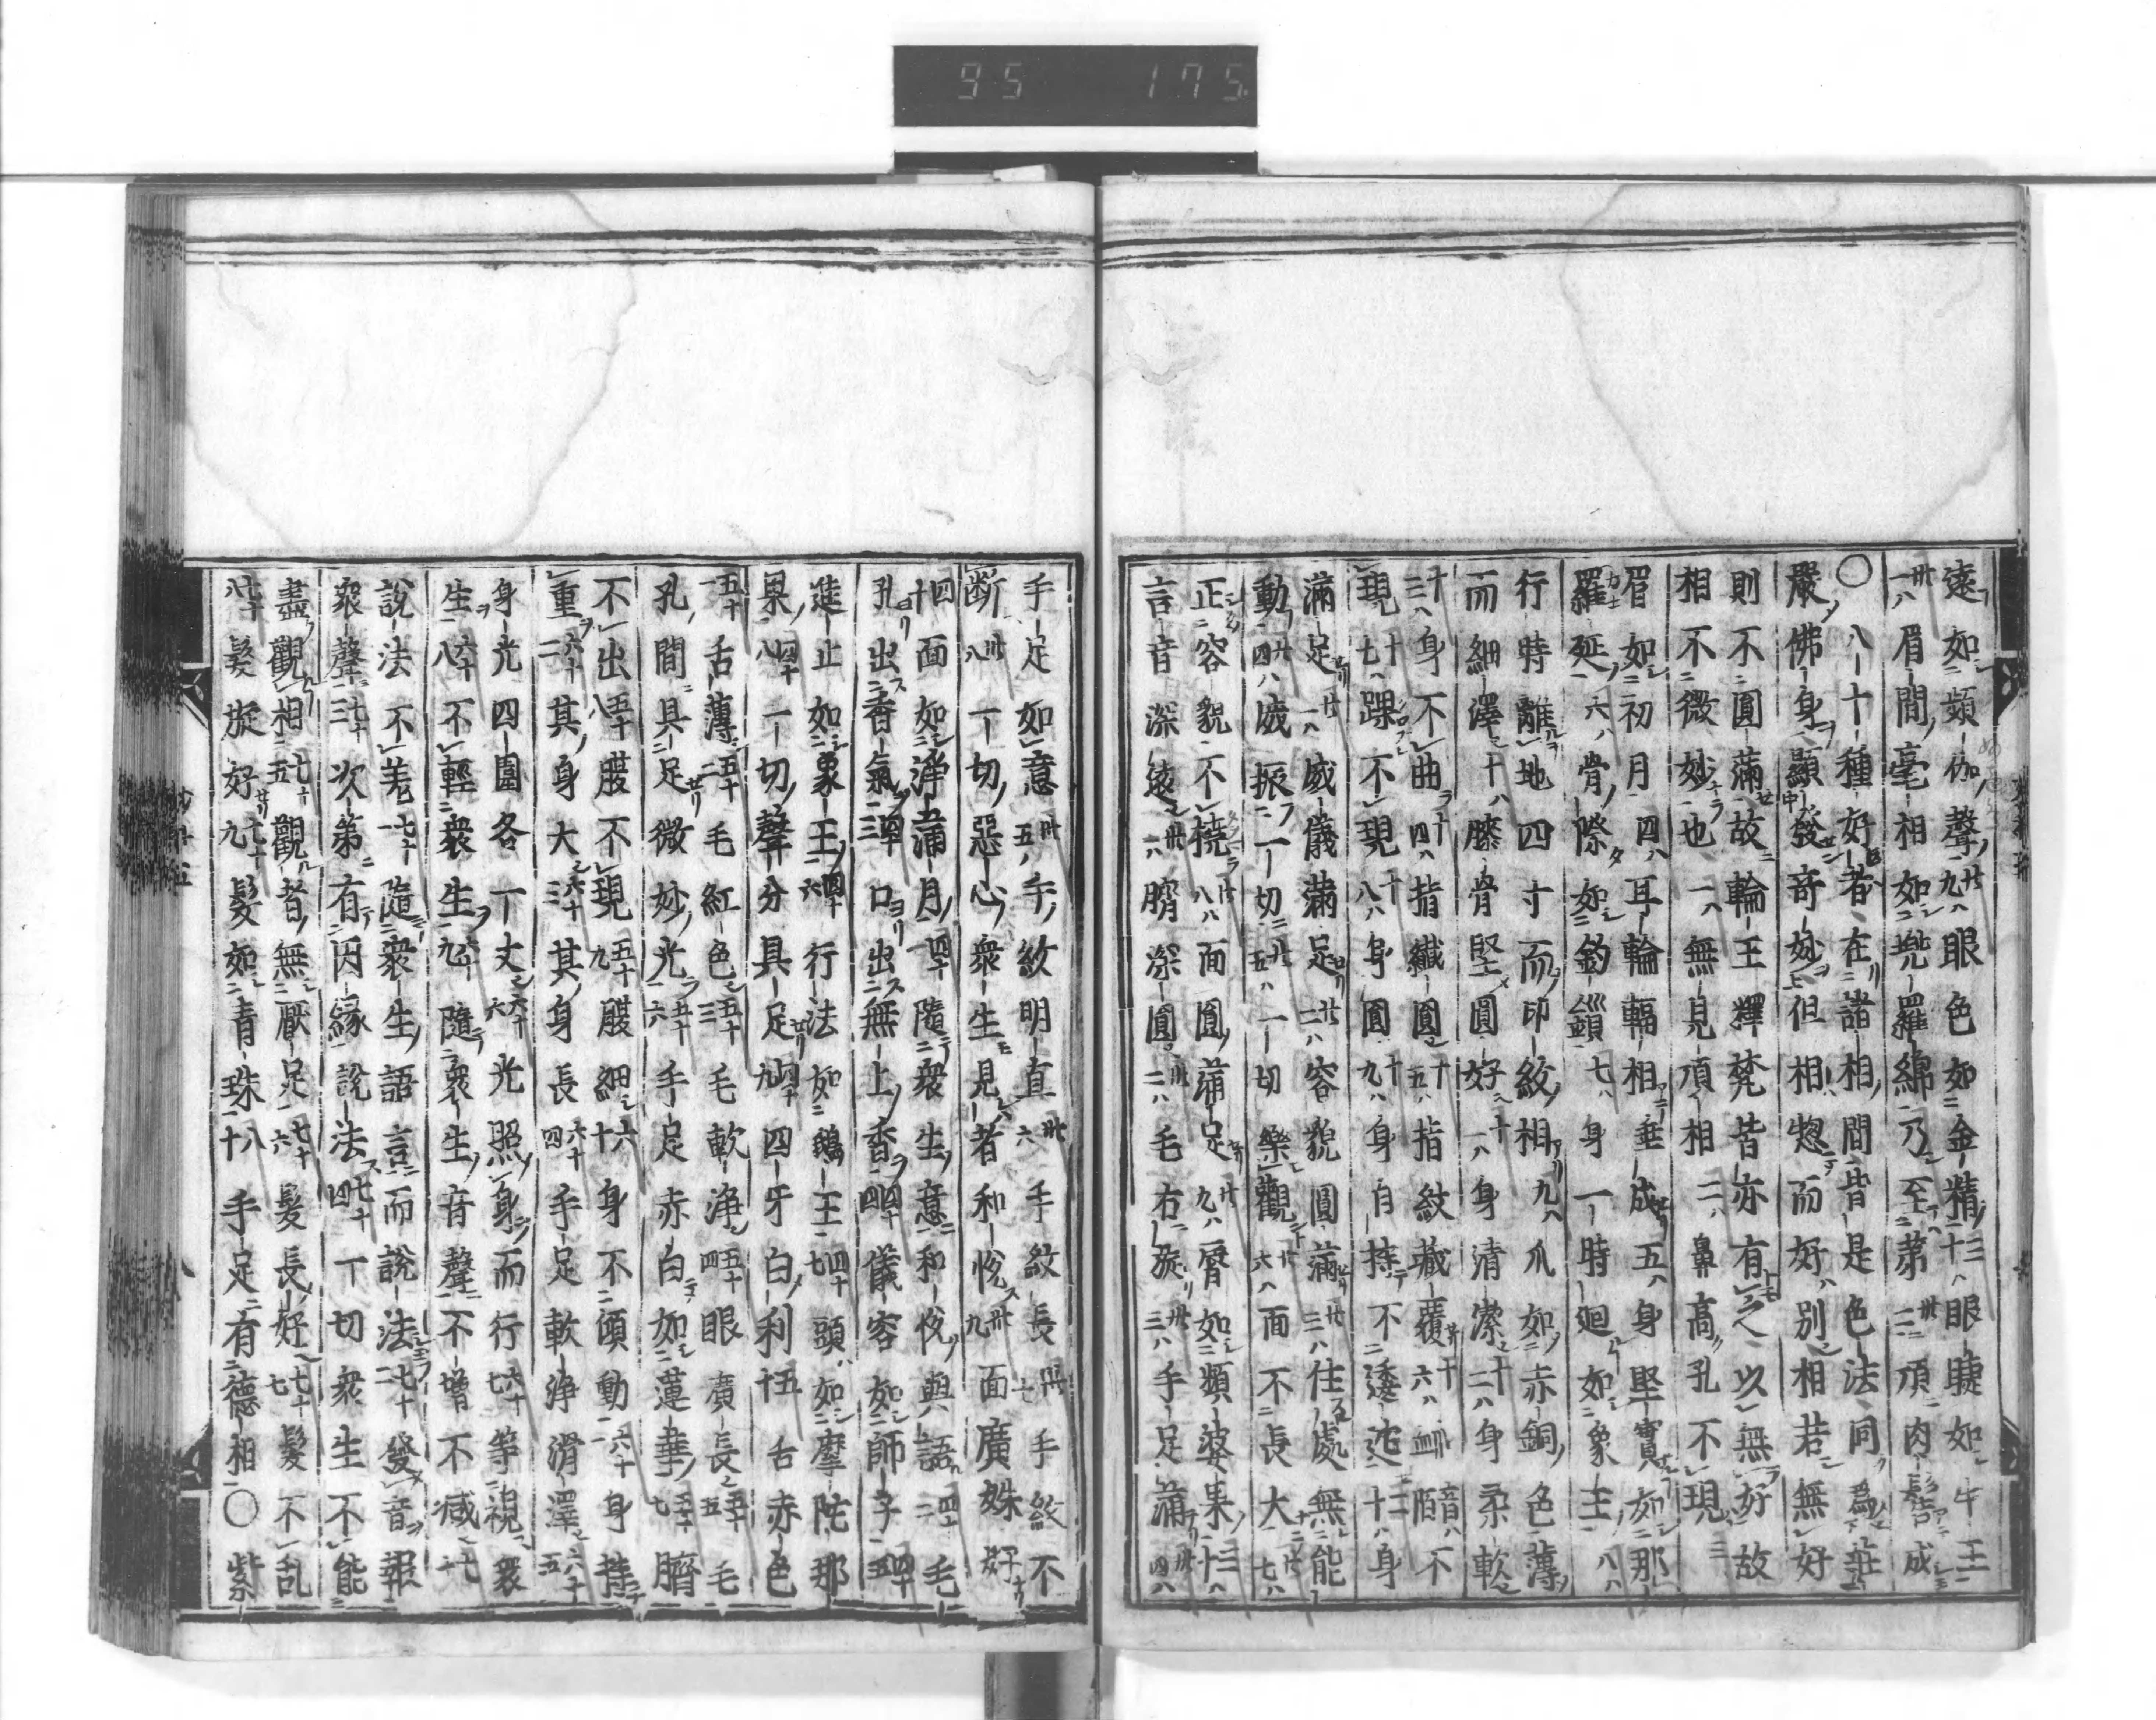 95 175
遠如頻伽聲九眼色如金精十三眼睫如牛王
一眉間毫相如兜羅綿乃至第二頂肉髻成
〇八十種好者在諸相間皆是色法同為莊
嚴佛身顯發奇妙但相惣而好別相若無好
則不圓滿故輪王釋梵皆亦有之以無好故
相不微妙也一無見頂相二鼻高孔不現三
眉如初月四耳輪輻相垂成五身堅實如那
羅延六骨際如鈎鎖七身一時廻如象王八
行時離地四寸而印紋相九爪如赤銅色薄
而細澤十膝骨堅圓好十一身清潔十二身柔軟
十三身不曲十四指纖圓十五指紋藏覆十六脈䧟不
現十七踝不現十八身圓十九身自持不逶迤廿身
滿足廿一威儀滿足廿二容貌圓滿廿三住處無能
動廿四威振一切廿五一切樂觀廿六面不長大廿七
正容貌不撓廿八面圓滿足廿九脣如頻婆果十三
言音深遠卅一臍深圓卅二毛右旋卅三手足滿卅四
手足如意卅五手紋明直卅六手紋長卅七手紋不
斷卅八一切惡心衆生見者和悅卅九面廣姝好
十四面如淨滿月四十一隨衆生意和悅與語四十二毛
孔出香氣四十三口出無上香四十四儀容如師子四十五
進止如象王四十六行法如鵝王四十七頭如摩陀那
果四十八一切聲分具足四十九四牙白利十五舌赤色
五十一舌薄五十二毛紅色五十三毛軟淨五十四眼廣長五十五毛
孔間具足微妙光五十六手足赤白如蓮華五十七臍
不出五十八腹不現五十九腹細十六身不傾動六十一身持
重六十二其身大六十三其身長六十四手足軟淨滑澤六十五
身光四圍各一丈六十六光照身而行六十七等視衆
生六十八不輕衆生六十九隨衆生音聲不增不減十七
說法不差七十一隨衆生語言而說法七十二發音報
衆聲七十三次第有因緣說法七十四一切衆生不能
盡觀相七十五觀者無厭足七十六髮長好七十七髮不乱
七十八髮旋好七十九髮如青珠十八手足有德相〇紫